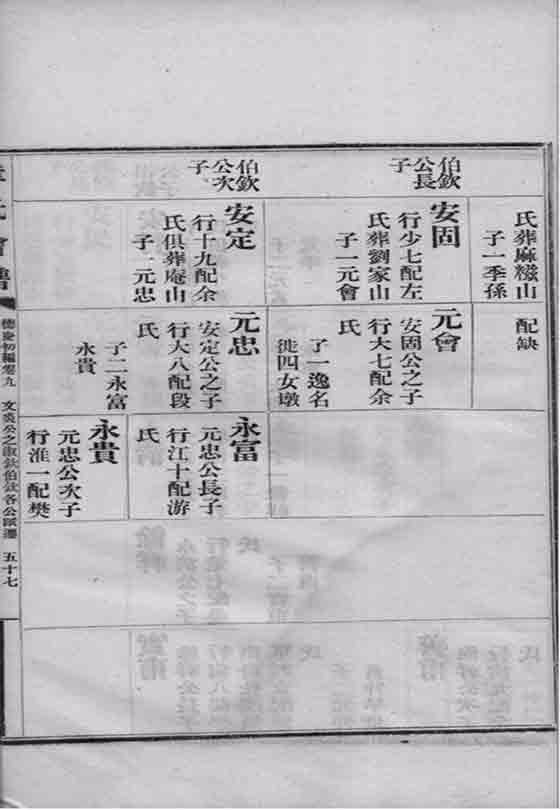 氏葬麻糍山
子一季孫
配缺
伯欽
公長
子
安固
行少七配左
氏葬劉家山
子一元會
元會
安固公之子
行大七配余
氏
子一逸名
徙四女墩
伯欽
公次
子
安定
行十九配余
氏俱葬庵山
子一元忠
元忠
安定公之子
行大八配段
氏
子二永富
永貴
永富
元忠公長子
行江十配游
氏
永貴
元忠公次子
行淮一配樊
氏會譜
德慶初編卷九
文 公之 欽伯欽各公 遷
五十七